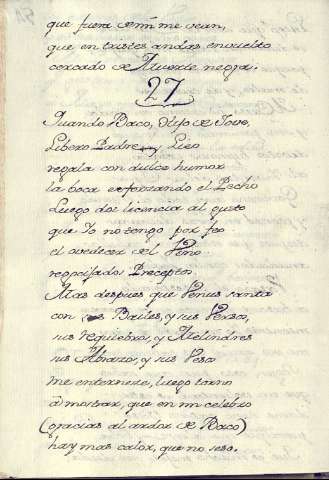 que fuera de mi me vean,
que en tristes andas envuelto
cercado de Muerte negra.
27
Quando Baco, Hijo de Jove,
Libero Padre y Lieo
regala con dulce humor
la boca esforzando el Pecho
Luego doi licencia al gusto
que Yo no tengo por feo
el ovedecer del Veno
regocijados Preceptos
Mas despues que Venus santa
con sus Bailes, y sus Versos,
sus requiebros, y Melindres
sus Abrazos, y sus Vesos
me enternere, luego torno
a mostrar, que en mi celebro
(gracias al ardor de Baco)
hay mas calor, que no seso.